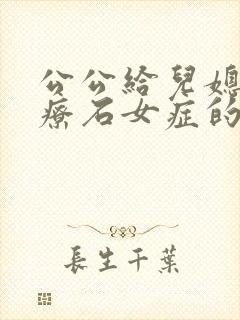 公公給兒媳
療石女症的
長生千葉